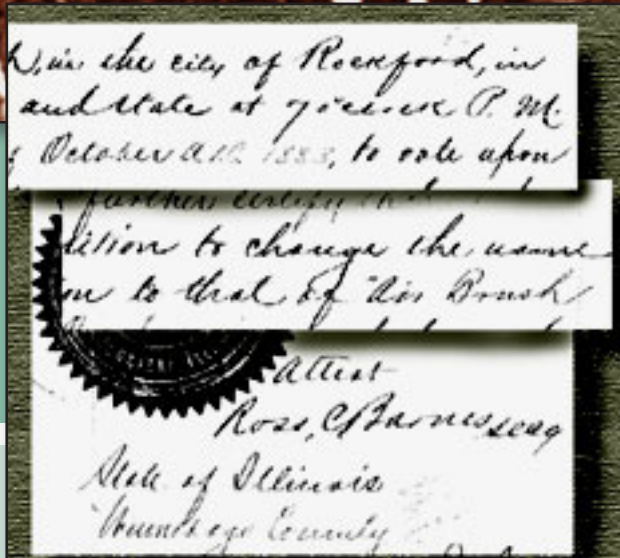 in the city of Rockford, in
and state at 7 o'clock P. M.
October A.D. 1883, to vote upon
further certify that
ition to change the name
to that of "Air Brush
Attest
Ross, C Barnes secy
State of Illinois
Winnebago County